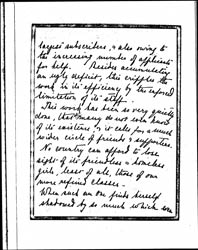 largest subscribers, & also owing to
the increasing number of applicants
for help. Besides accumulating
an ugly deficit, this cripples the
work in its efficiency by the enforced
limitation of its staff.
This work has been so very quietly
done, that many do not even know
of its existence, & it calls for a much
wider circle of friends & supporters.
No country can afford to lose
sight of its friendless & homeless
girls, least of all, those of our
more refined classes.
When such an one finds herself
shadowed by so much which